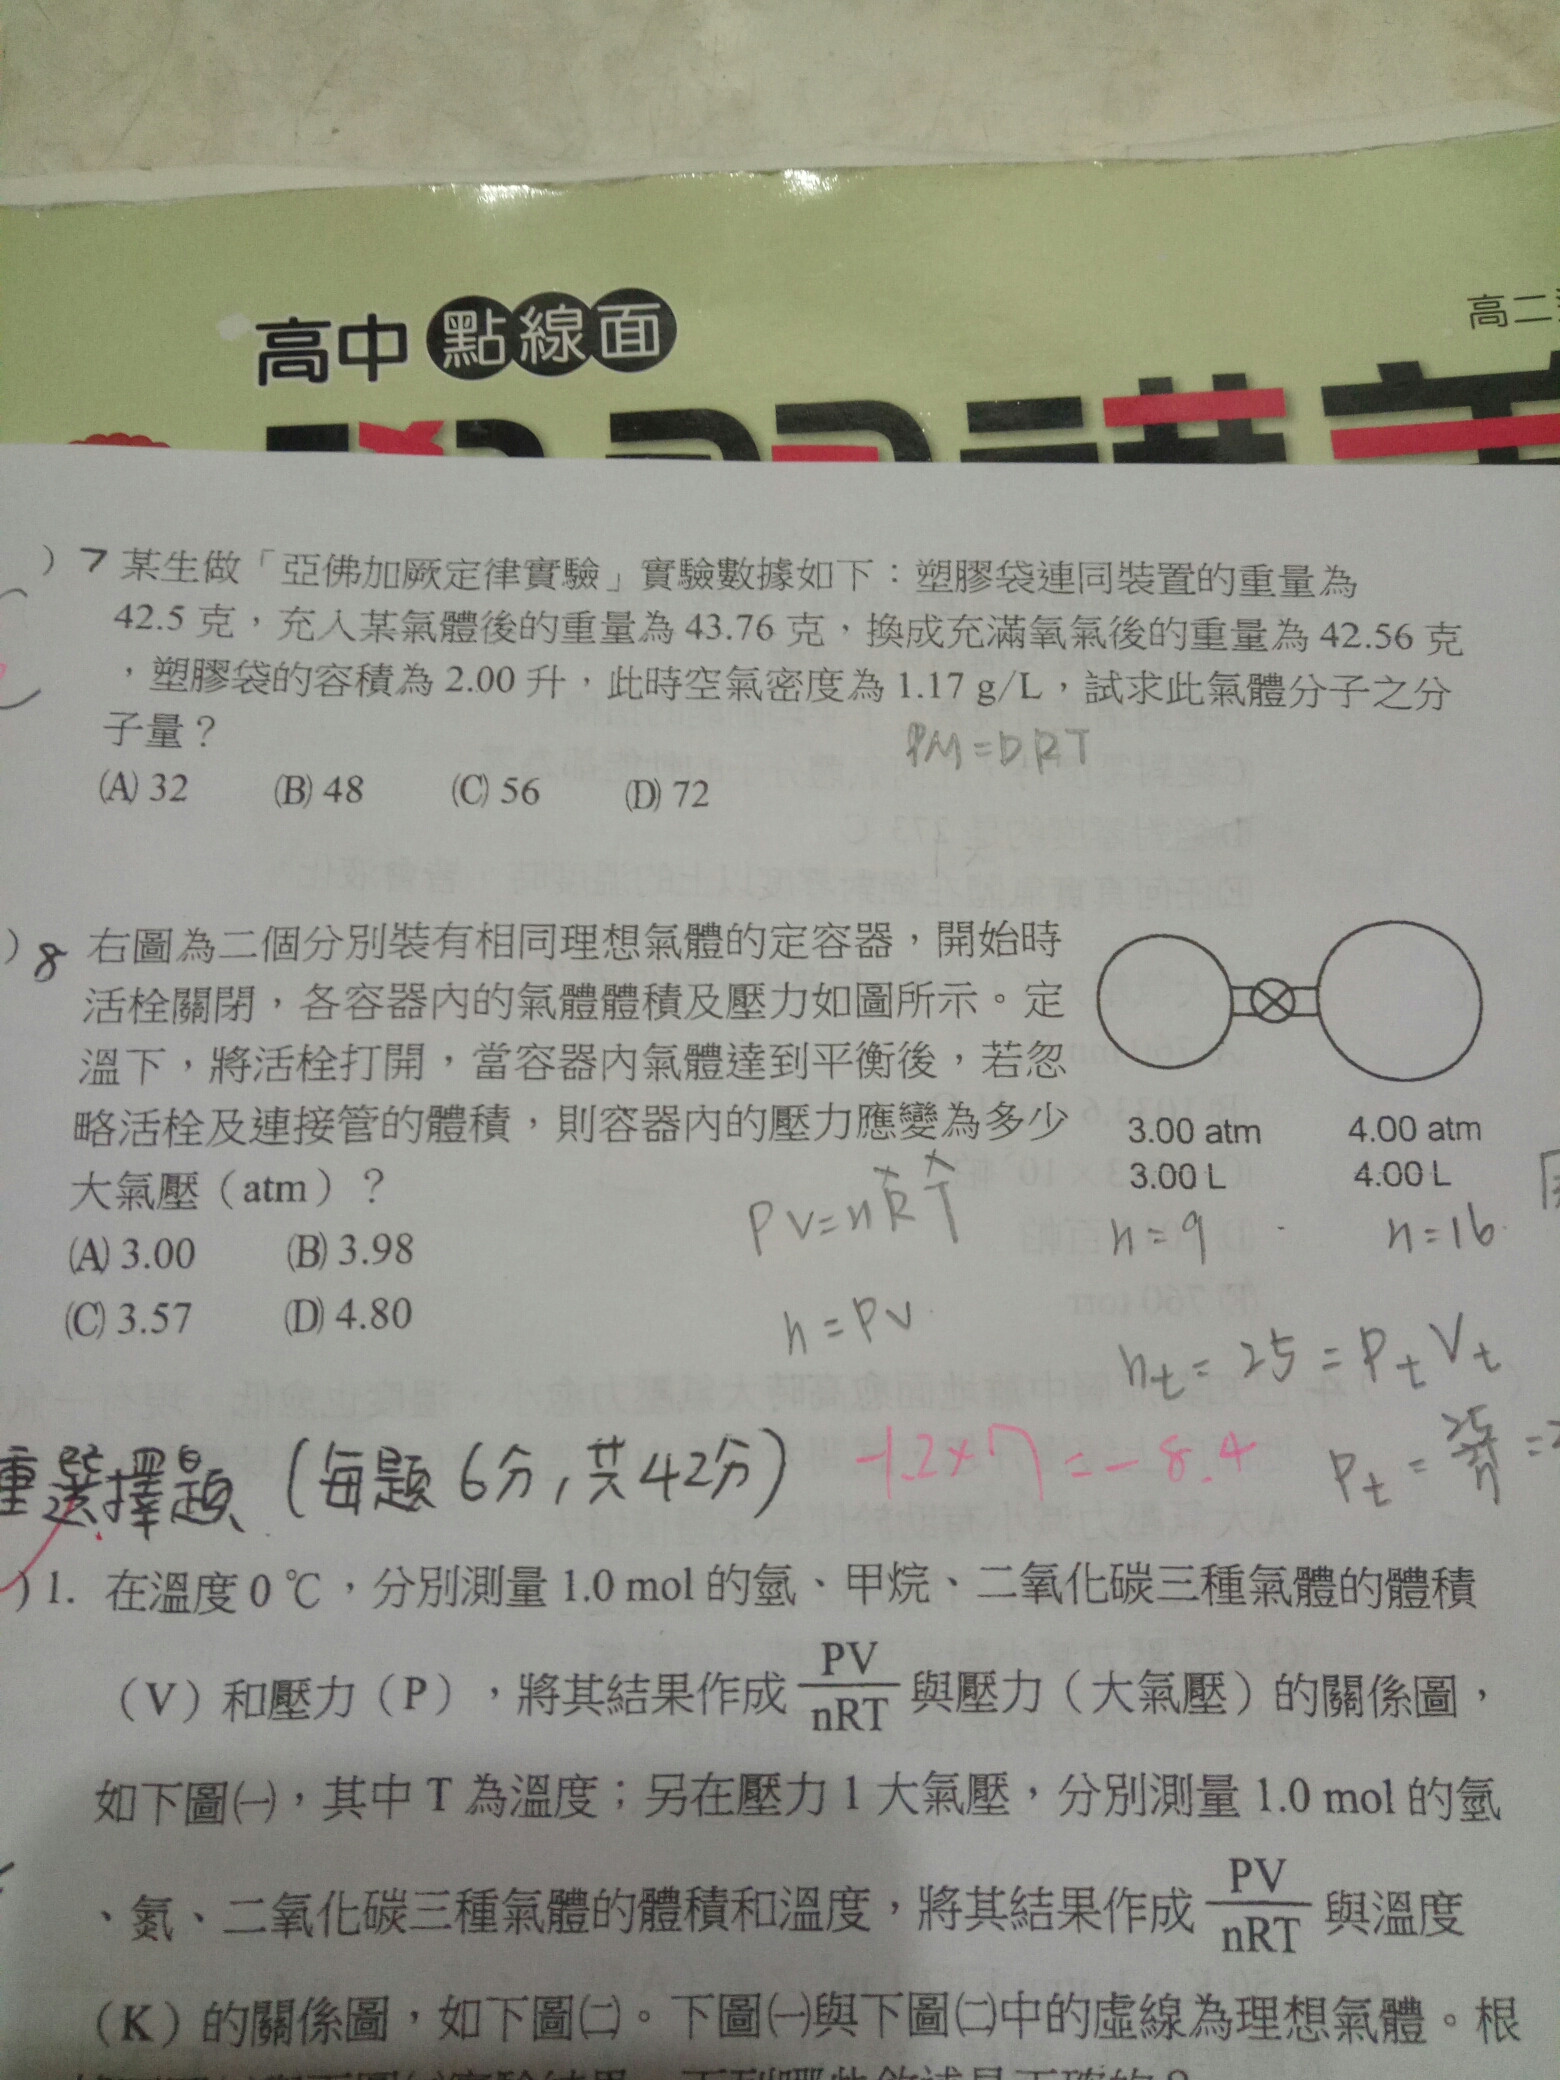 高中 點線面
高二
學習講義
) 7 某生做「亞佛加厥定律實驗」實驗數據如下：塑膠袋連同裝置的重量為
42.5 克，充入某氣體後的重量為 43.76 克，換成充滿氧氣後的重量為 42.56 克
，塑膠袋的容積為 2.00 升，此時空氣密度為 1.17 g/L，試求此氣體分子之分
子量？
PM=DRT
(A) 32 (B) 48 (C) 56 (D) 72
) 8 右圖為二個分別裝有相同理想氣體的定容器，開始時
活栓關閉，各容器內的氣體體積及壓力如圖所示。定
溫下，將活栓打開，當容器內氣體達到平衡後，若忽
略活栓及連接管的體積，則容器內的壓力應變為多少
大氣壓（atm）？
3.00 atm 4.00 atm
3.00 L 4.00 L
PV=nRT
n=9 n=16
(A) 3.00 (B) 3.98
(C) 3.57 (D) 4.80
n=PV
nt=25=PtVt
重選擇題 (每題6分,共42分)
-1.2×7=-8.4
Pt=25/7=
) 1. 在溫度 0 ℃，分別測量 1.0 mol 的氫、甲烷、二氧化碳三種氣體的體積
（V）和壓力（P），將其結果作成 PV/nRT 與壓力（大氣壓）的關係圖，
如下圖㈠，其中 T 為溫度；另在壓力 1 大氣壓，分別測量 1.0 mol 的氫
、氮、二氧化碳三種氣體的體積和溫度，將其結果作成 PV/nRT 與溫度
（K）的關係圖，如下圖㈡。下圖㈠與下圖㈡中的虛線為理想氣體。根